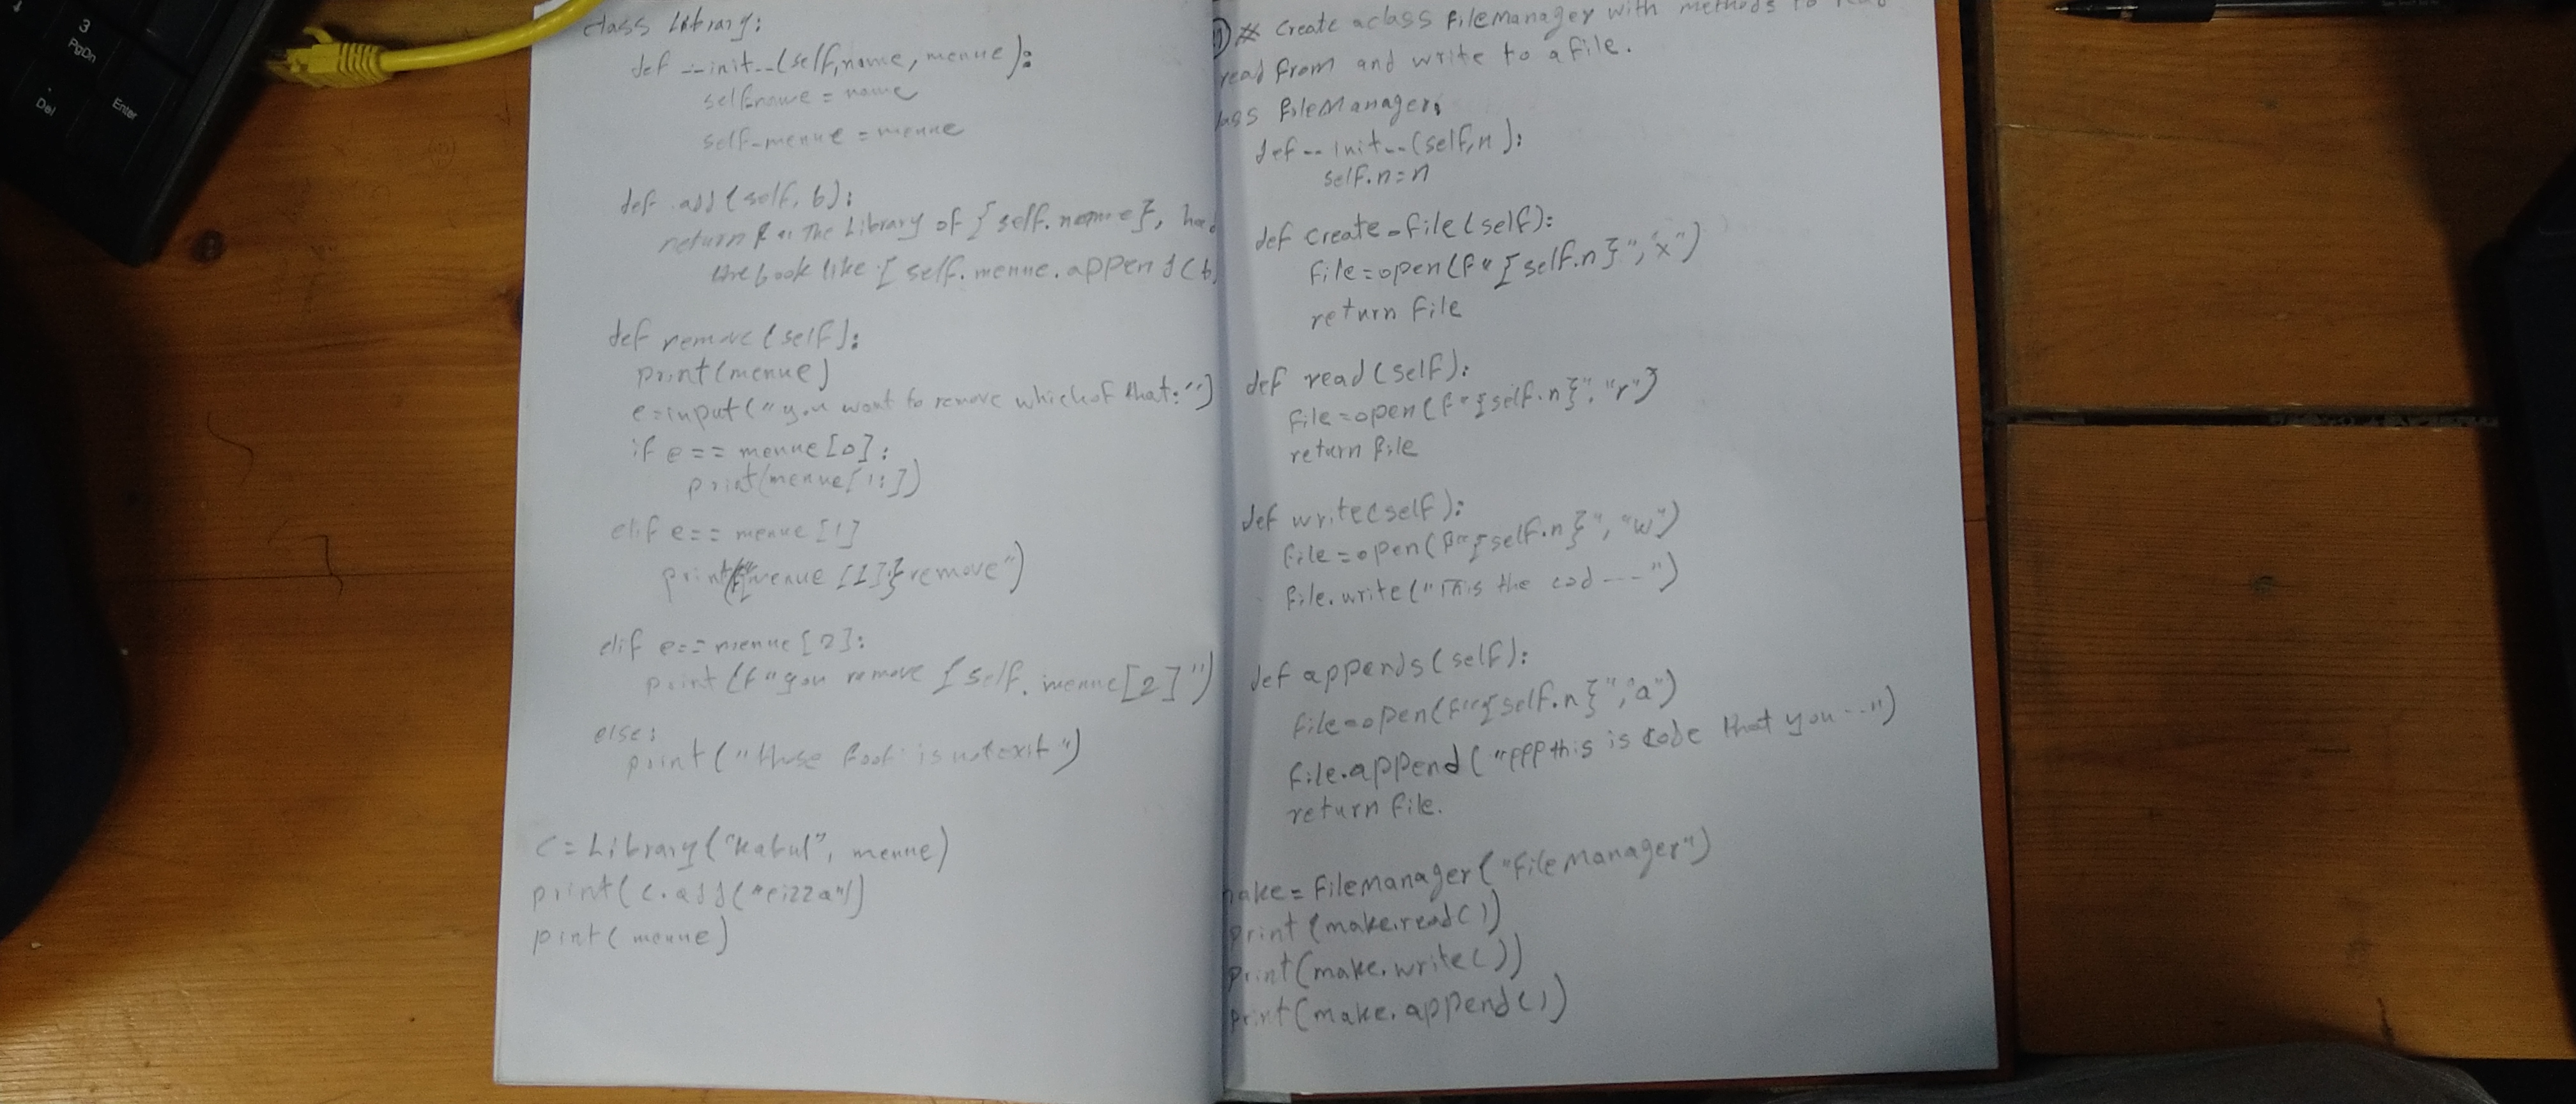 class Library:
def __init__(self,name,menue):
self.name = name
self.menue = menue
def add(self,b):
return f"The Library of {self.name}, has
the book like {self.menue.append(b,
def remove(self):
print(menue)
e=input("you want to remove which of that:")
if e == menue[0]:
print(menue[1:])
elif e == menue[1]
print(f"{menue[1]} remove")
elif e == menue[2]:
print(f"you remove {self.menue[2]")
else:
print("those book is not exit")
c = Library("Kabul", menue)
print(c.add("
print(menue)
# create aclass filemanager with methods to read
read from and write to a file.
ass filemanager:
def __init__(self,n):
self.n=n
def create_file(self):
file=open(f"{self.n}","x")
return file
def read(self):
file=open(f"{self.n}","r")
return file
def write(self):
file=open(f"{self.n}","w")
file.write("This the cod ---")
def appends(self):
file=open(f"{self.n}","a")
file.append("appthis is code that you ---")
return file.
make=filemanager("filemanager")
print(make.read())
print(make.write())
print(make.append())
Del
3
PgDn
Enter